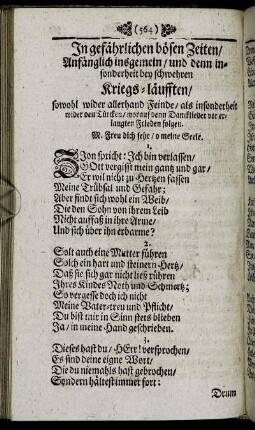 (564)
In gefährlichen bösen Zeiten/
Anfänglich insgemein/ und denn in-
sonderheit bey schwehren
Kriegs-läufften/
sowohl wider allerhand Feinde/ als insonderheit
wider den Türcken/ worauf denn Dancklieder vor er-
langten Frieden folgen.
M. Freu dich sehr/ o meine Seele.
1.
Zion spricht: Ich bin verlassen/
GOtt vergisst mein gantz und gar/
Er wil nicht zu Hertzen fassen
Meine Trübsal und Gefahr:
Aber findt sich wohl ein Weib/
Die den Sohn von ihrem Leib
Nicht auffaß in ihre Arme/
Und sich über ihn erbarme?
2.
Solt auch eine Mutter führen
Solch ein hart und steinern Hertz/
Daß sie sich gar nicht ließ rühren
Ihres Kindes Noth und Schmertz;
So vergesse doch ich nicht
Meine Vater-treu und Pflicht/
Du bist mir in Sinn stets blieben
Ja/ in meine Hand geschrieben.
3.
Dieses hast du/ HErr! versprochen/
Es sind deine eigne Wort/
Die du niemahls hast gebrochen/
Sondern hältest immer fort:
Drum